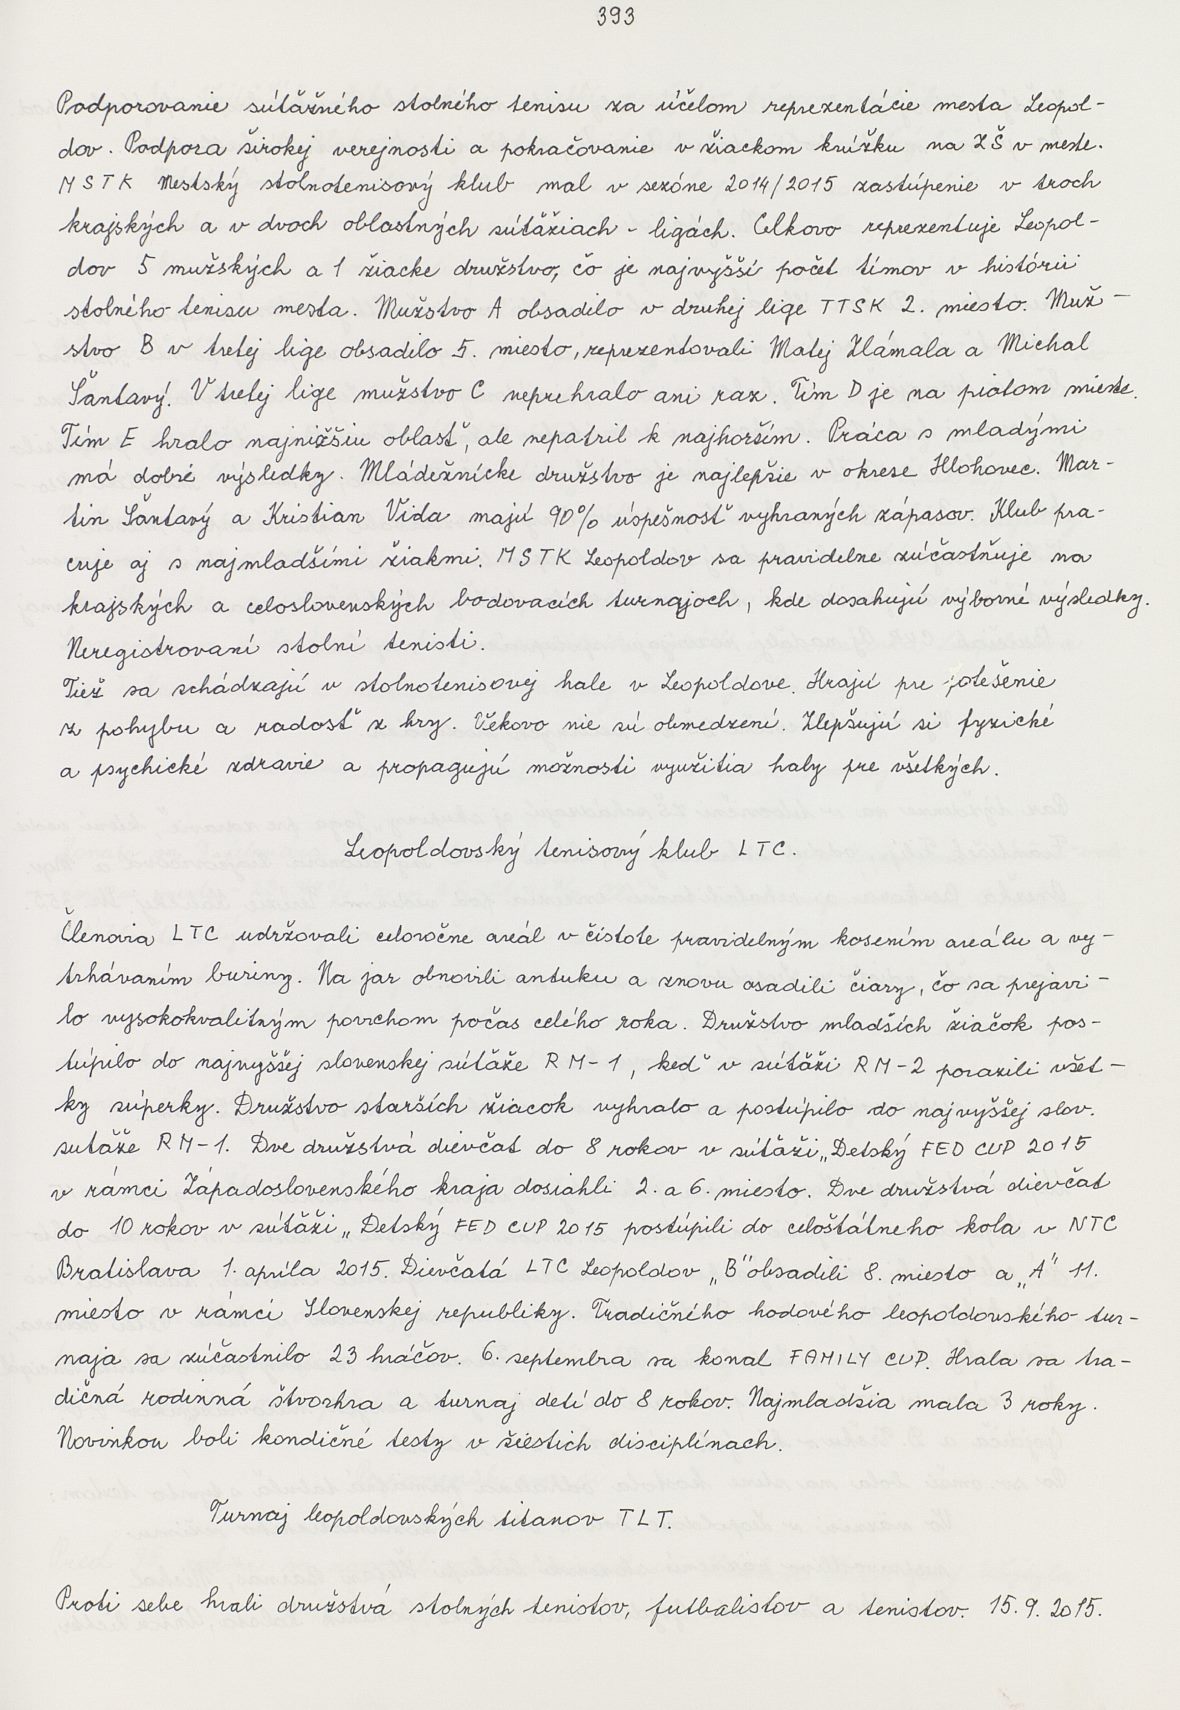 393
Podporovanie súťažného stolného tenisu za účelom reprezentácie mesta Leopol-
dov. Podpora širokej verejnosti a pokračovanie v žiackom krúžku na ZŠ v meste.
MSTK Mestský stolnotenisový klub mal v sezóne 2014/2015 zastúpenie v troch
krajských a v dvoch oblastných súťažiach - ligách. Celkovo reprezentuje Leopol-
dov 5 mužských a 1 žiacke družstvo, čo je najvyšší počet tímov v histórii
stolného tenisu mesta. Mužstvo A obsadilo v druhej lige TTSK 2. miesto. Muž-
stvo B v tretej lige obsadilo 5. miesto, reprezentovali Matej Zlámala a Michal
Šantavý. V tretej lige mužstvo C neprehralo ani raz. Tím D je na piatom mieste.
Tím E hralo najnižšiu oblasť, ale nepatril k najhorším. Práca s mladými
má dobré výsledky. Mládežnícke družstvo je najlepšie v okrese Hlohovec. Mar-
tin Šantavý a Kristian Vida majú 90% úspešnosť vyhraných zápasov. Klub pra-
cuje aj s najmladšími žiakmi. MSTK Leopoldov sa pravidelne zúčastňuje na
krajských a celoslovenských bodovacích turnajoch, kde dosahujú výborné výsledky.
Neregistrovaní stolní tenisti.
Tiež sa schádzajú v stolnotenisovej hale v Leopoldove. Hrajú pre potešenie
z pohybu a radosť z hry. Vekovo nie sú obmedzení. Zlepšujú si fyzické
a psychické zdravie a propagujú možnosti využitia haly pre všetkých.
Leopoldovský tenisový klub LTC.
Členovia LTC udržovali celoročne areál v čistote pravidelným kosením areálu a vy-
trhávaním buriny. Na jar obnovili antuku a znovu osadili čiary, čo sa prejavi-
lo vysokokvalitným povrchom počas celého roka. Družstvo mladších žiačok pos-
túpilo do najvyššej slovenskej súťaže RM-1, keď v súťaži RM-2 porazili všet-
ky súperky. Družstvo starších žiacok vyhralo a postúpilo do najvyššej slov.
sutaže RM-1. Dve družstvá dievčat do 8 rokov v súťaži „Detský FED CUP 2015
v rámci Západoslovenského kraja dosiahli 2. a 6. miesto. Dve družstvá dievčat
do 10 rokov v súťaži „Detský FED CUP 2015 postúpili do celoštátneho kola v NTC
Bratislava 1. apríla 2015. Dievčatá LTC Leopoldov „B" obsadili 8. miesto a „A" 11.
miesto v rámci Slovenskej republiky. Tradičného hodového leopoldovského tur-
naja sa zúčastnilo 23 hráčov. 6. septembra sa konal FAMILY CUP. Hrala sa tra-
dičná rodinná štvorhra a turnaj detí do 8 rokov. Najmladšia mala 3 roky.
Novinkou boli kondičné testy v šiestich disciplínach.
Turnaj leopoldovských titanov TLT.
Proti sebe hrali družstvá stolných tenistov, futbalistov a tenistov. 15.9.2015.